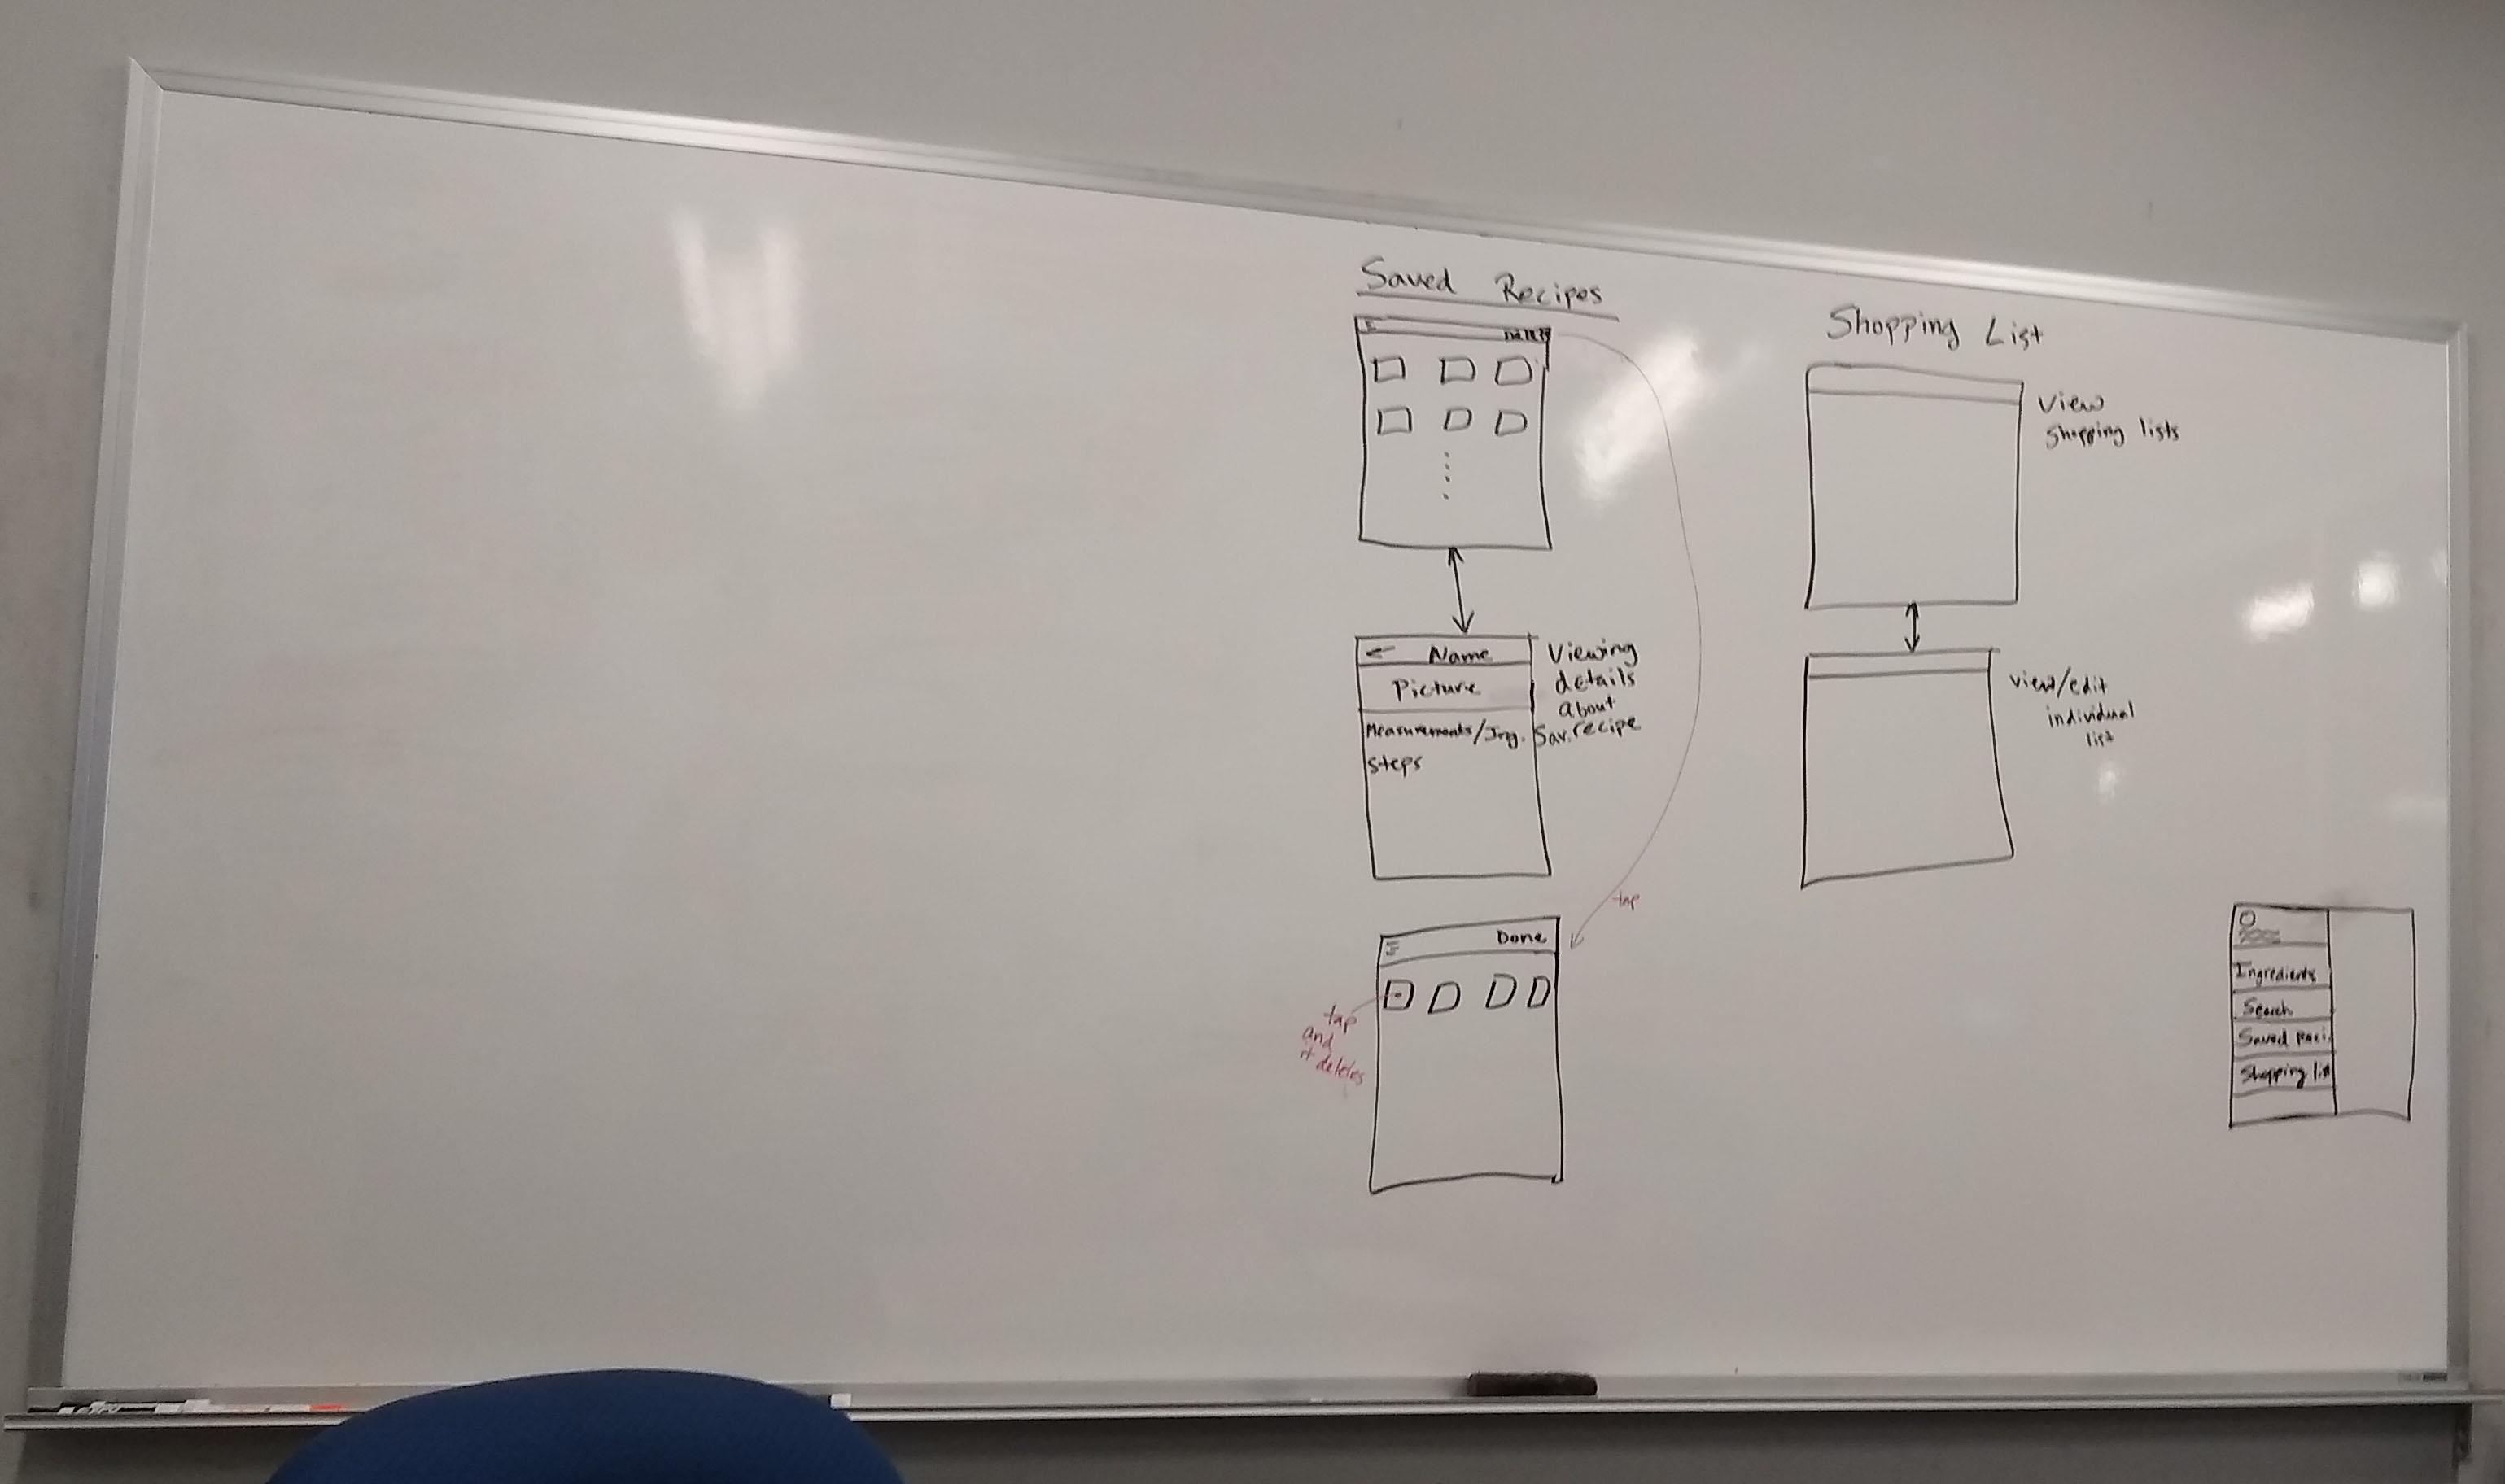 Saved Recipes
Name
Picture
Measurements/Ing.
Steps
Viewing
details
about
Sav. recipe
tap
Done
tap
and
it deletes
Shopping List
View
Shopping lists
view/edit
individual
list
Ingredients
Search
Saved Reci.
Shopping list